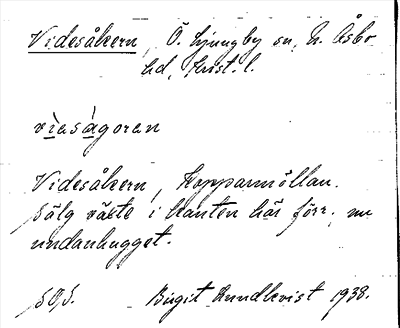 Videsåkern, Ö. Ljungby sn, N. Åsbo
hd, Krist. l.
viasågoren
Videsåkern, Hoppamöllan.
Sälg växte i kanten här förr, nu
undanhugget.
Birgit Kundkvist 1938.